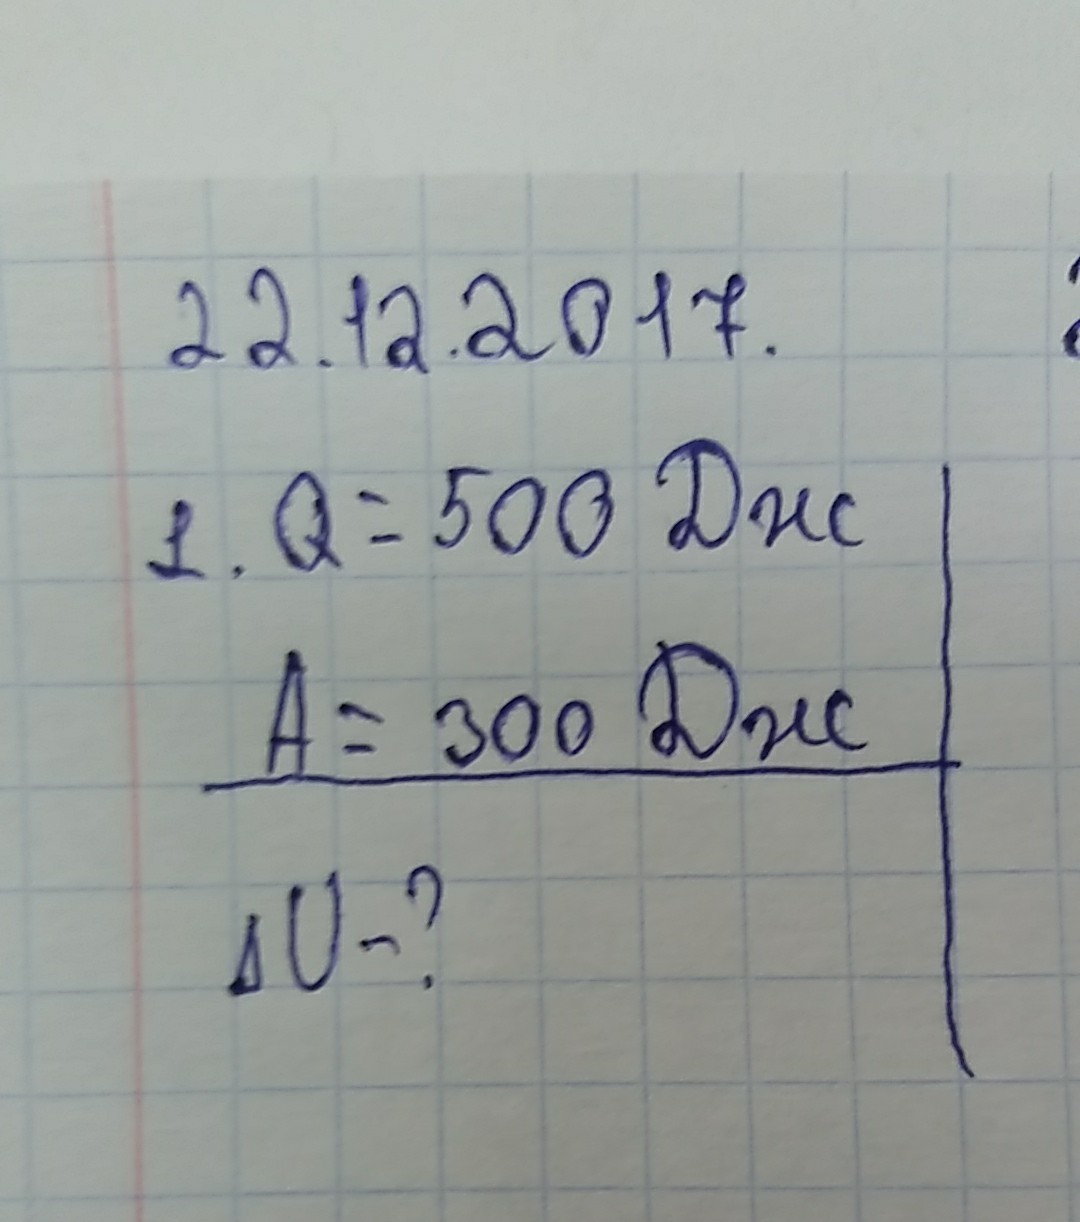 22.12.2017.
1. Q = 500 Дж
A = 300 Дж
ΔU - ?